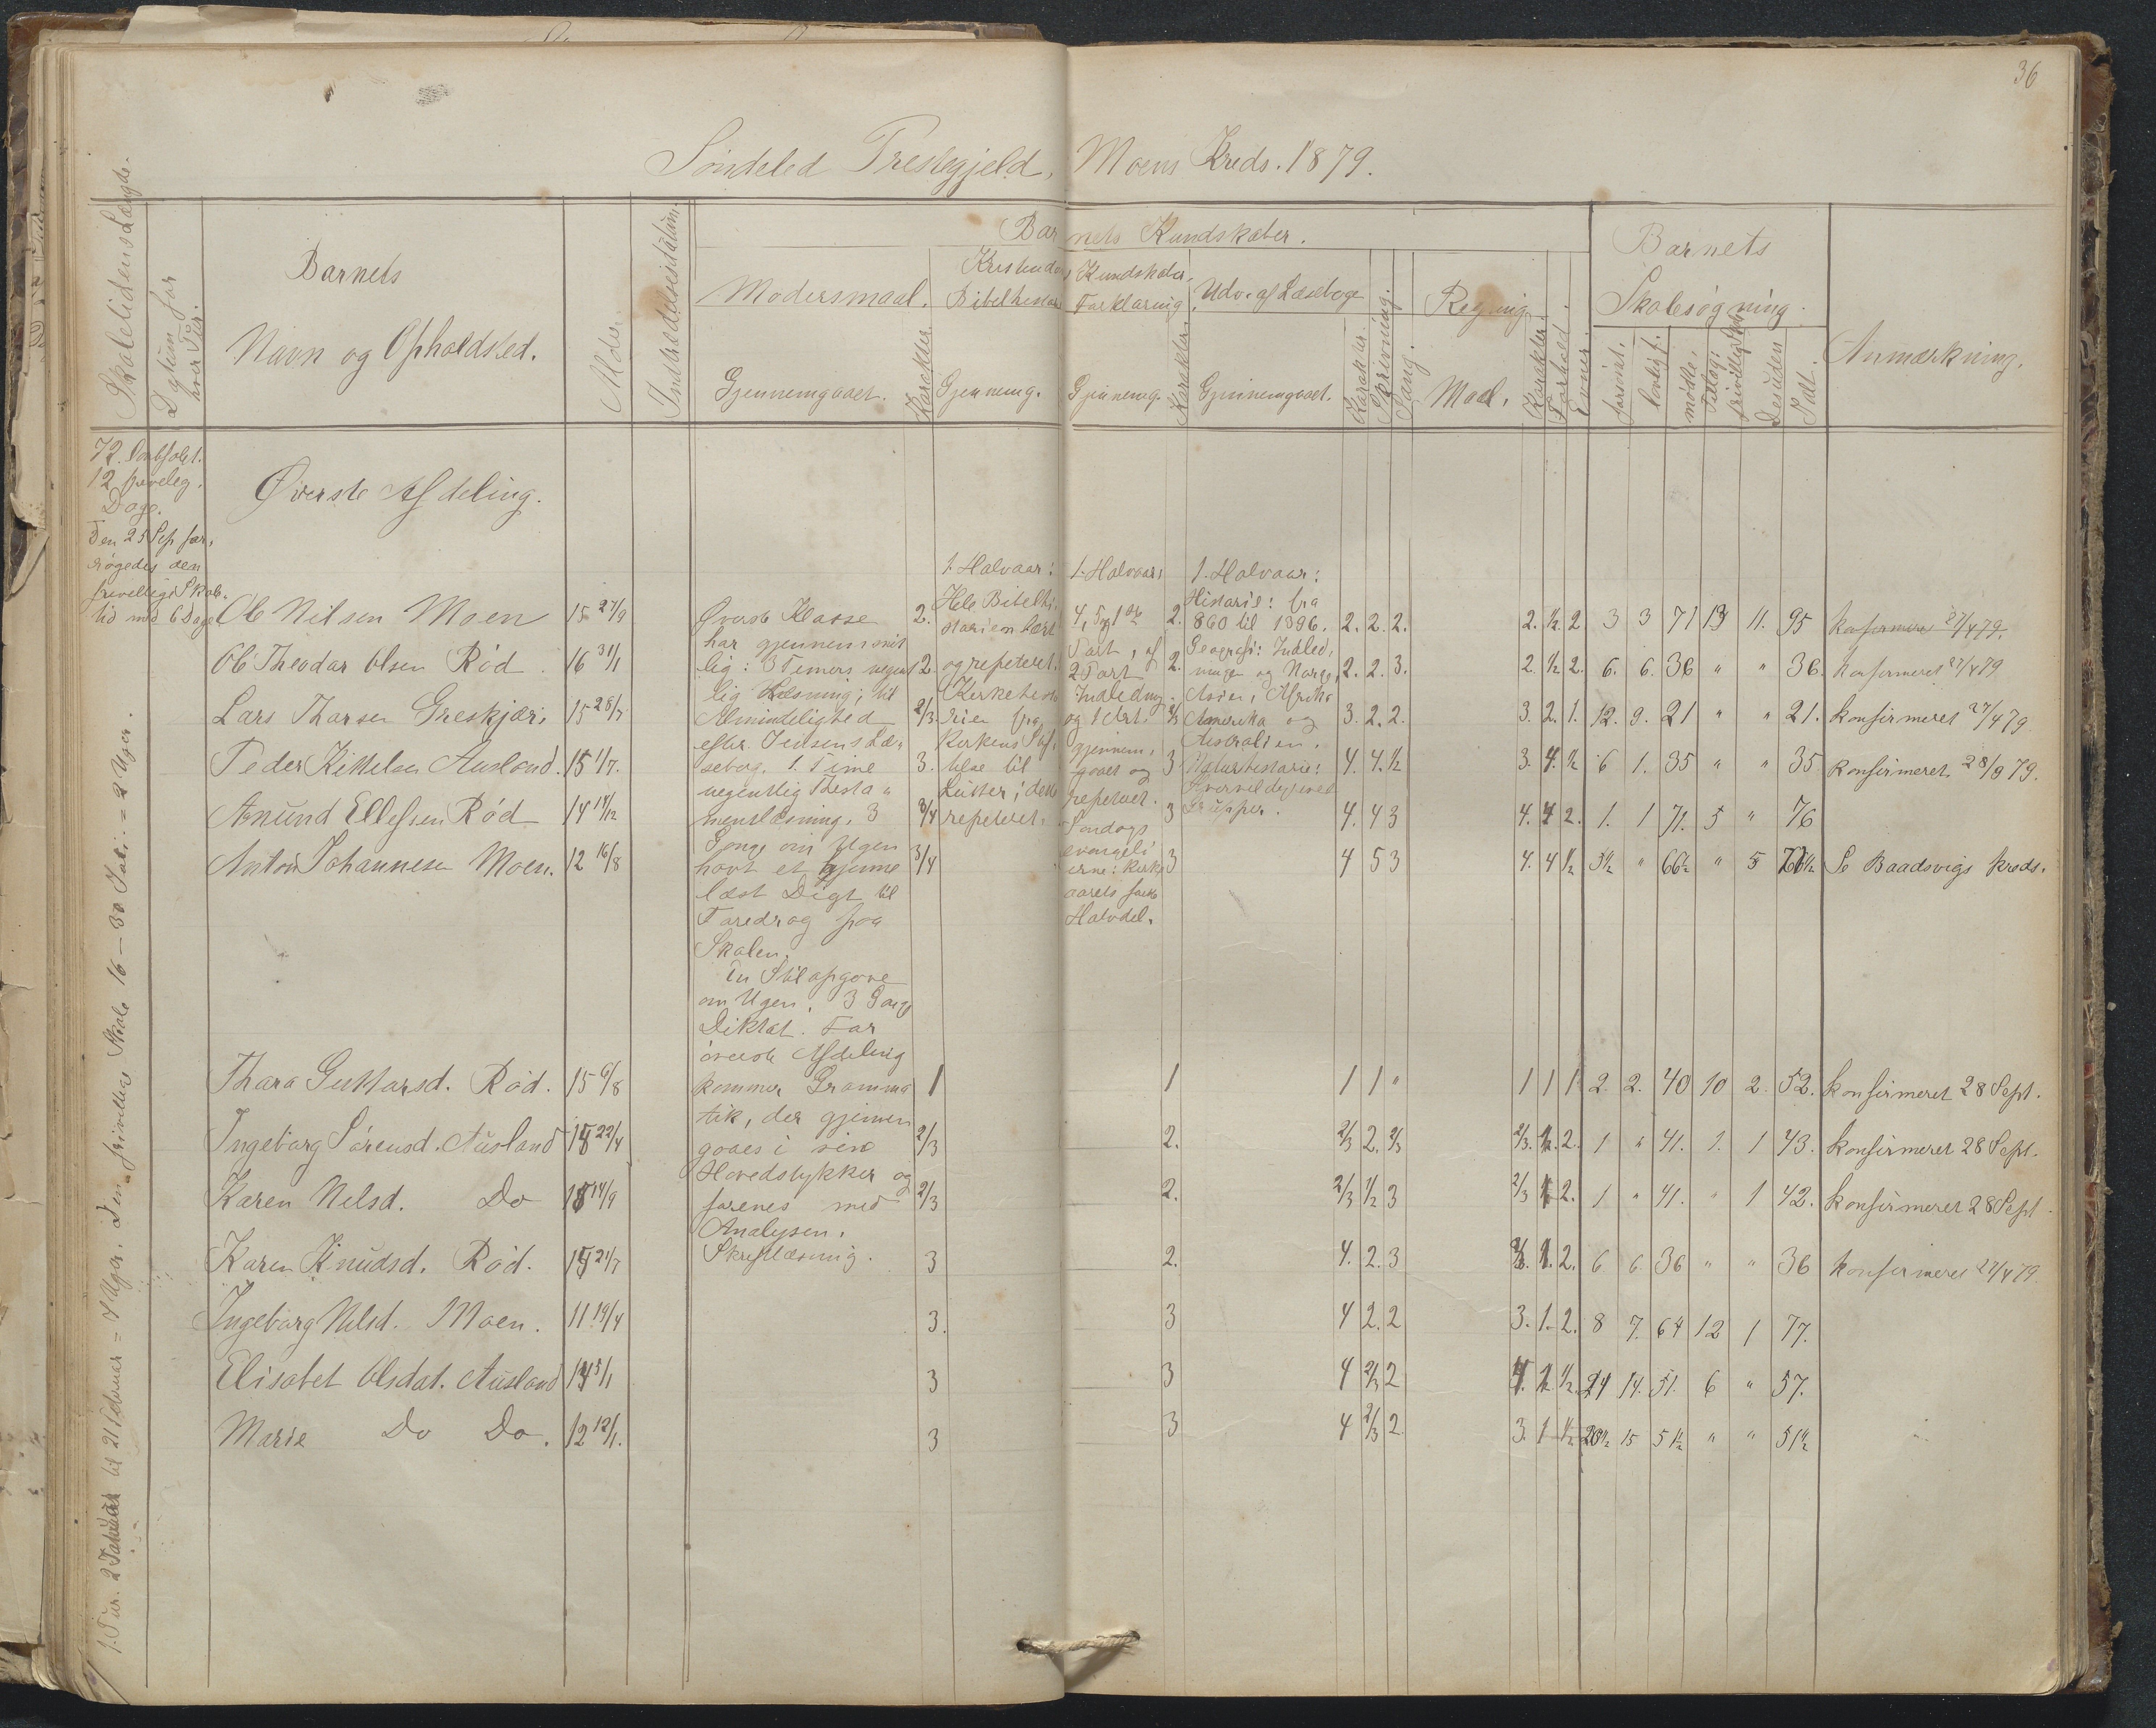 36
Søndeled Prestegjeld, Moens Kreds. 1879.
Skoletidens Længde.
Datum for hver Tur.
Barnets
Navn og Opholdsted.
Alder.
Indtrædelsesdatum.
Barnets Kundskaber.
Modersmaal.
Gjennemgaaet.
Karakter
Kristendoms Kundskaber.
Bibelhistorie
Gjennemg.
Forklaring
Gjennemg.
Karakter.
Udv. af Læseboge
Gjennemgaaet.
Karakter.
Skrivning.
Sang.
Regning.
Maal.
Karakter.
Forhold.
Evner.
Barnets
Skolesøgning.
forsømt.
lovligt.
mødte.
Desuden
Talt.
Anmærkning.
72. Lovbefalet.
12 priveleg.
Dage.
Den 25 Sep for,
øgedes den
frivillige Skole,
tid med 6 Dage
1. Tur. 2 Januar til 21 Februar = 7 Uger. Den frivillige Skole 16 – 30 Juli = 2 Uger.
Øverste Afdeling.
Ole Nilsen Moen 15 27/9 2. 2. 2. 2. 2. 2. 1/2 2 3 3 71 13 11. 95 konfirmeret 27/4 79.
Ole Theodor Olsen Rød. 16 31/1 2. 2. 2. 2. 3. 2. 1/2 2. 6. 6. 36 " " 36. konfirmeret 27/4 79
Lars Thorsen Greskjær. 15 28/7 2/3 2/3 3. 2. 2. 3. 2. 1. 12. 9. 21 " " 21. konfirmeret 27/4 79
Peder Kittelsen Ausland. 15 1/7. 3. 3 4. 4. 1/2 3. 4. 1/2 6 1. 35 " " 35 konfirmeret 28/9 79.
Anund Ellefsen Rød 14 14/12 3/4 3 4. 4 3 4. 4 2. 1. 1 71. 5 " 76
Anton Johannesen Moen. 12 16/8 3/4 3 4 5 3 4. 4 1/2 5 1/2 " 66 1/2 " 5 71 1/2 Se Baadsvigs kreds.
Thora Guttorsd. Rød. 15 6/8 1 1 1 1 " 1 1 1 2. 2. 40 10 2. 52. konfirmeret 28 Sept.
Ingeborg Sørensd. Ausland 15 22/4 2/3 2. 2/3 2. 2/3 2/3. 1. 2. 1 " 41. 1. 1 43. konfirmeret 28 Sept.
Karen Nelsd. Do 15 14/9 2/3 2. 2/3 1/2 3 2/3 1 2. 1 " 41. " 1 42. konfirmeret 28 Sept.
Karen Knudsd. Rød. 15 21/7 3 2. 4. 2. 3 3. 1. 2. 6 6. 36 " " 36 konfirmeret 27/4 79.
Ingeborg Nelsd. Moen. 11 19/4 3. 3 4 2. 2 3. 1. 2. 8 7. 64 12 1 77.
Elisabet Olsdat. Ausland 14 5/1 3 3 4 2/3 2 4. 1. 1/2. 24 14. 51. 6 " 57.
Marie Do Do. 12 12/1. 3 3 4 2/3 2 3. 1 1/2 20 1/2 15 51 1/2 " " 51 1/2
Øverste Klasse
har gjennemsnit
lig: 3 Timers ugent
lig Læsning; til
Almindelighed
efter Jensens Læ,
sebog. 1. Time
ugentlig Testa,
mentlæsning. 3
Gange om Ugen
havt et hjemme
læst Digt til
Foredrag paa
Skolen.
En Stilopgave
om Ugen. 3 Gange
Diktat. For
øverste Afdeling
kommer Gramma
tik, der gjennem
gaaes i sine
Hovedstykker og
forenes med
Analysen.
Skriftlæsning.
1. Halvaar:
Hele Bibelhi,
storien lært
og repeteret.
Kirkehisto
rien fra
Kirkens Stif,
telse til
Luther; dette
repeteret.
1. Halvaar:
4, 5 og 1ste
Part, af
2 Part
Indledning
og 1 Art.
gjennem,
gaaet og
repeteret.
Søndags
evangeli
erne: Kirke
aarets første
Halvdel.
1. Halvaar:
Historie: fra
860 til 1396.
Geografi: Indled,
ningen og Norge,
Asien, Afrika
Amerika og
Australien.
Naturhistorie:
Hvirveldyrenes
Grupper.